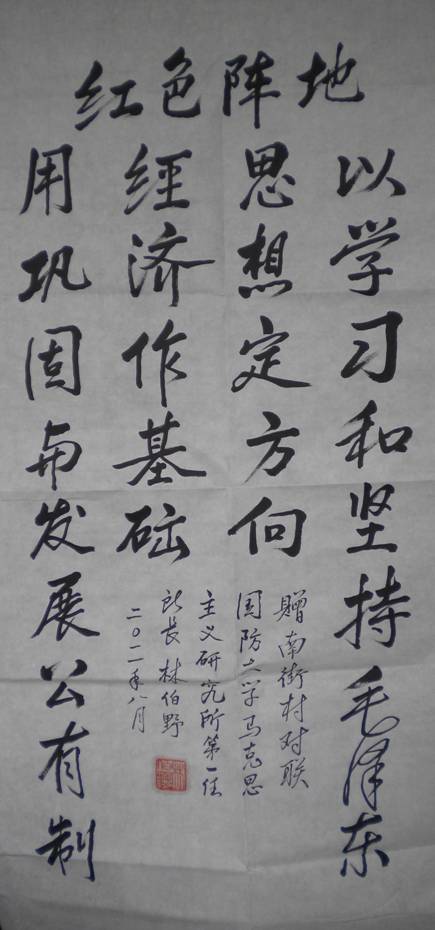 红色阵地
以学习和坚持毛泽东
思想定方向
用巩固与发展公有制
經济作基础
贈南街村对联
国防大学马克思
主义研究所第一任
所长林伯野
二〇一一年八月